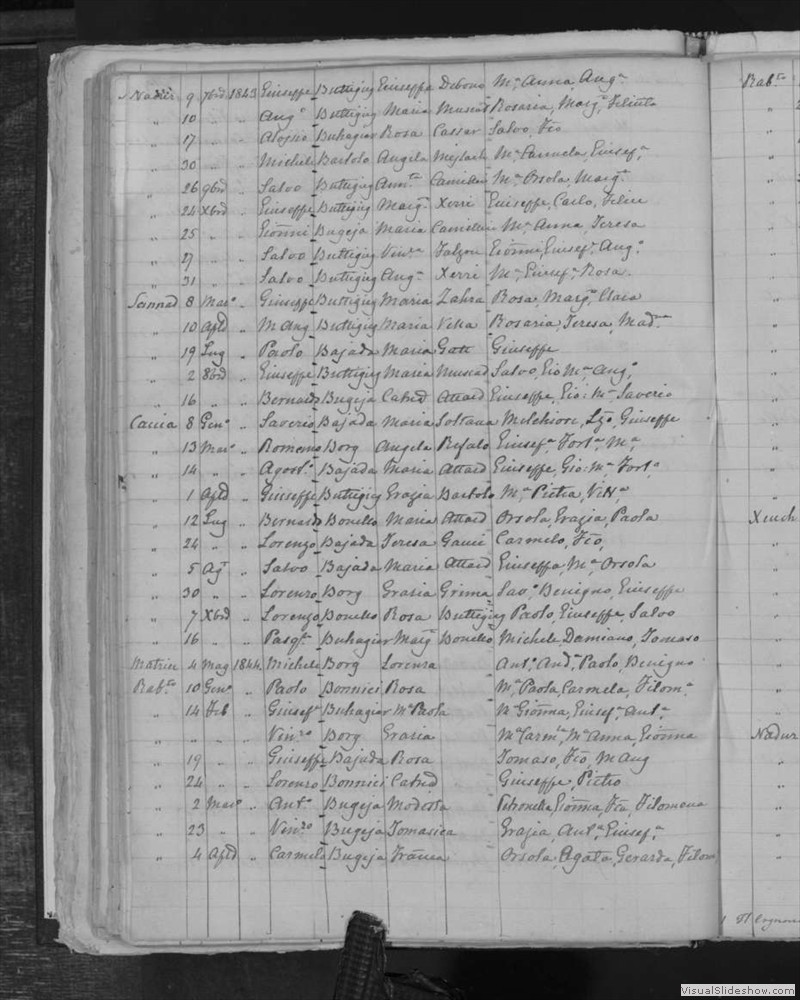 Nadur 9 7brė 1843 Giuseppe Buttigieg Giuseppa Debono Mª Anna, Angª
" 10 " " Angº Buttigieg Maria Muscat Rosaria, Margª, Felicita
" 17 " " Aloysio Buhagiar Rosa Cassar Salvo, Fco
" 30 " " Michele Bartolo Angela Mejlach Mª Carmela, Giusefª
" 26 9brė " Salvo Buttigieg Annta Camilleri Mª Orsola, Margª
" 24 Xbrė " Giuseppe Buttigieg Margª Xerri Giuseppe, Carlo, Felice
" 25 " " Giovni Bugeja Maria Camilleri Mª Anna, Teresa
" 27 " " Salvo Buttigieg Vinca Falzon Giovni, Giusefª, Angº
" 31 " " Salvo Buttigieg Angª Xerri Mª, Giusefª, Rosa
Sannad 8 Marº " Giuseppe Buttigieg Maria Zahra Rosa, Margª, Clara
" 10 Aple " M Ang Buttigieg Maria Vella Rosaria, Teresa, Madª
" 19 Lug " Paolo Bajada Maria Gatt Giuseppe
" 2 8brė " Giuseppe Buttigieg Maria Muscat Salvo, Gio Mª Angº
" 16 " " Bernardo Bugeja Catnė Attard Giuseppe, Gio: Mª Saverio
Caccia 8 Genº " Saverio Bajada Maria Soltana Melchiore, Lzo, Giuseppe
" 13 Marº " Romano Borg Angela Refalo Giusefª Fortª Mª
" 14 " " Agostº Bajada Maria Attard Giuseppe, Gio: Mª, Fortº
" 1 Aple " Giuseppe Buttigieg Grazia Bartolo Mª Pietra, Vittª
" 12 Lug " Bernardo Bonello Maria Attard Orsola, Grazia, Paola
" 24 " " Lorenzo Bajada Teresa Gauci Carmelo, Fco,
" 5 Agº " Salvo Bajada Maria Attard Giuseppa, Mª Orsola
" 30 " " Lorenzo Borg Grazia Grima Savº Benigno, Giuseppe
" 7 Xbrė " Lorenzo Bonello Rosa Buttigieg Paolo, Giuseppe, Salvo
" 16 " " Pasqle Buhagiar Margª Bonello Michele, Damiano, Tomaso
Matrice 4 Mag 1844 Michele Borg Lorenza Antº Andª Paolo, Benigno
Rabto 10 Genº " Paolo Bonnici Rosa Mª Paola, Carmela, Filomª
" 14 Feb " Giusefe Buhagiar Mª Paola Mª Giovna, Giusefª Antª
" " " " Vinzo Borg Grazia Mª Carmª, Mª Anna, Giovna
" 19 " " Giuseppe Bajada Rosa Tomaso, Fco, M Ang
" 24 " " Lorenzo Bonnici Catnė Giuseppe, Pietro
" 2 Marº " Antº Bugeja Modesta Petronilla, Giovna, Fca, Filomena
" 23 " " Vinzo Bugeja Tomasica Grazia, Antª, Giusefª
" 4 Aple " Carmelo Bugeja Franca Orsola, Agata, Gerarda, Filom
Rabto
Xeuch
Nadur
VisualSlideshow.com